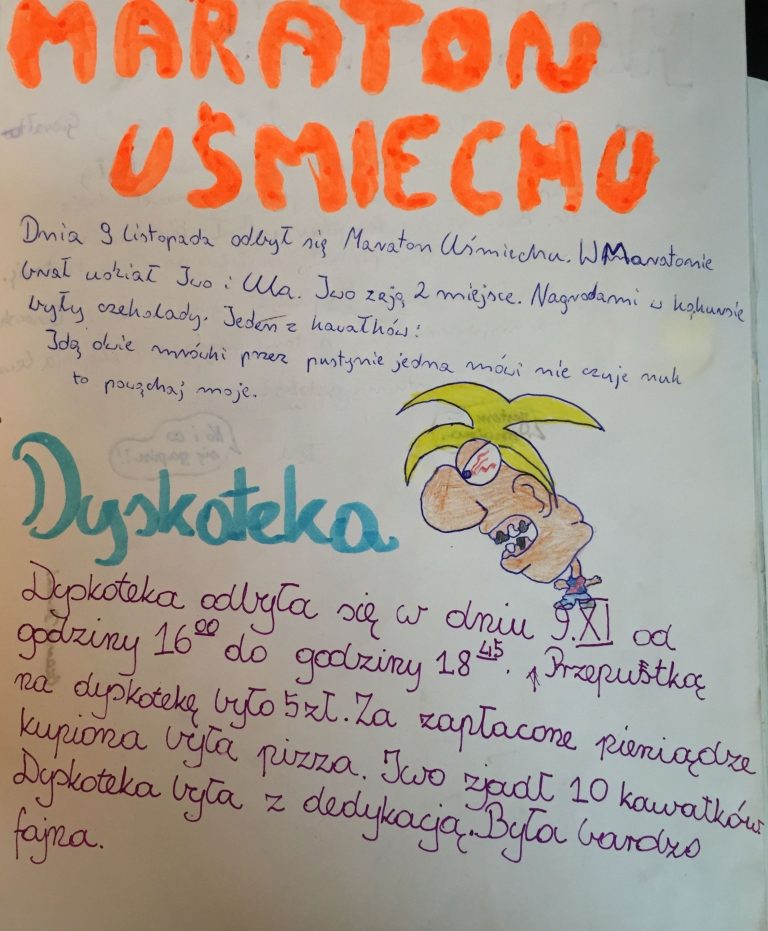 MARATON
UŚMIECHU
Dnia 9 listopada odbył się Maraton Uśmiechu. W Maratonie
brał udział Iwo i Ula. Iwo zają 2 miejsce. Nagrodami w kąkursie
były czekolady. Jeden z kawałków:
Idą dwie mrówki przez pustynie jedna mówi nie czuje nuk
to powąchaj moje.
No i co
się gapisz!!
Dyskoteka
Dyskoteka odbyła się w dniu 9.XI od
godziny 16⁰⁰ do godziny 18⁴⁵. Przepustką
na dyskotekę było 5zł. Za zapłacone pieniądze
kupiona była pizza. Iwo zjadł 10 kawałków
Dyskoteka była z dedykacją. Była bardzo
fajna.